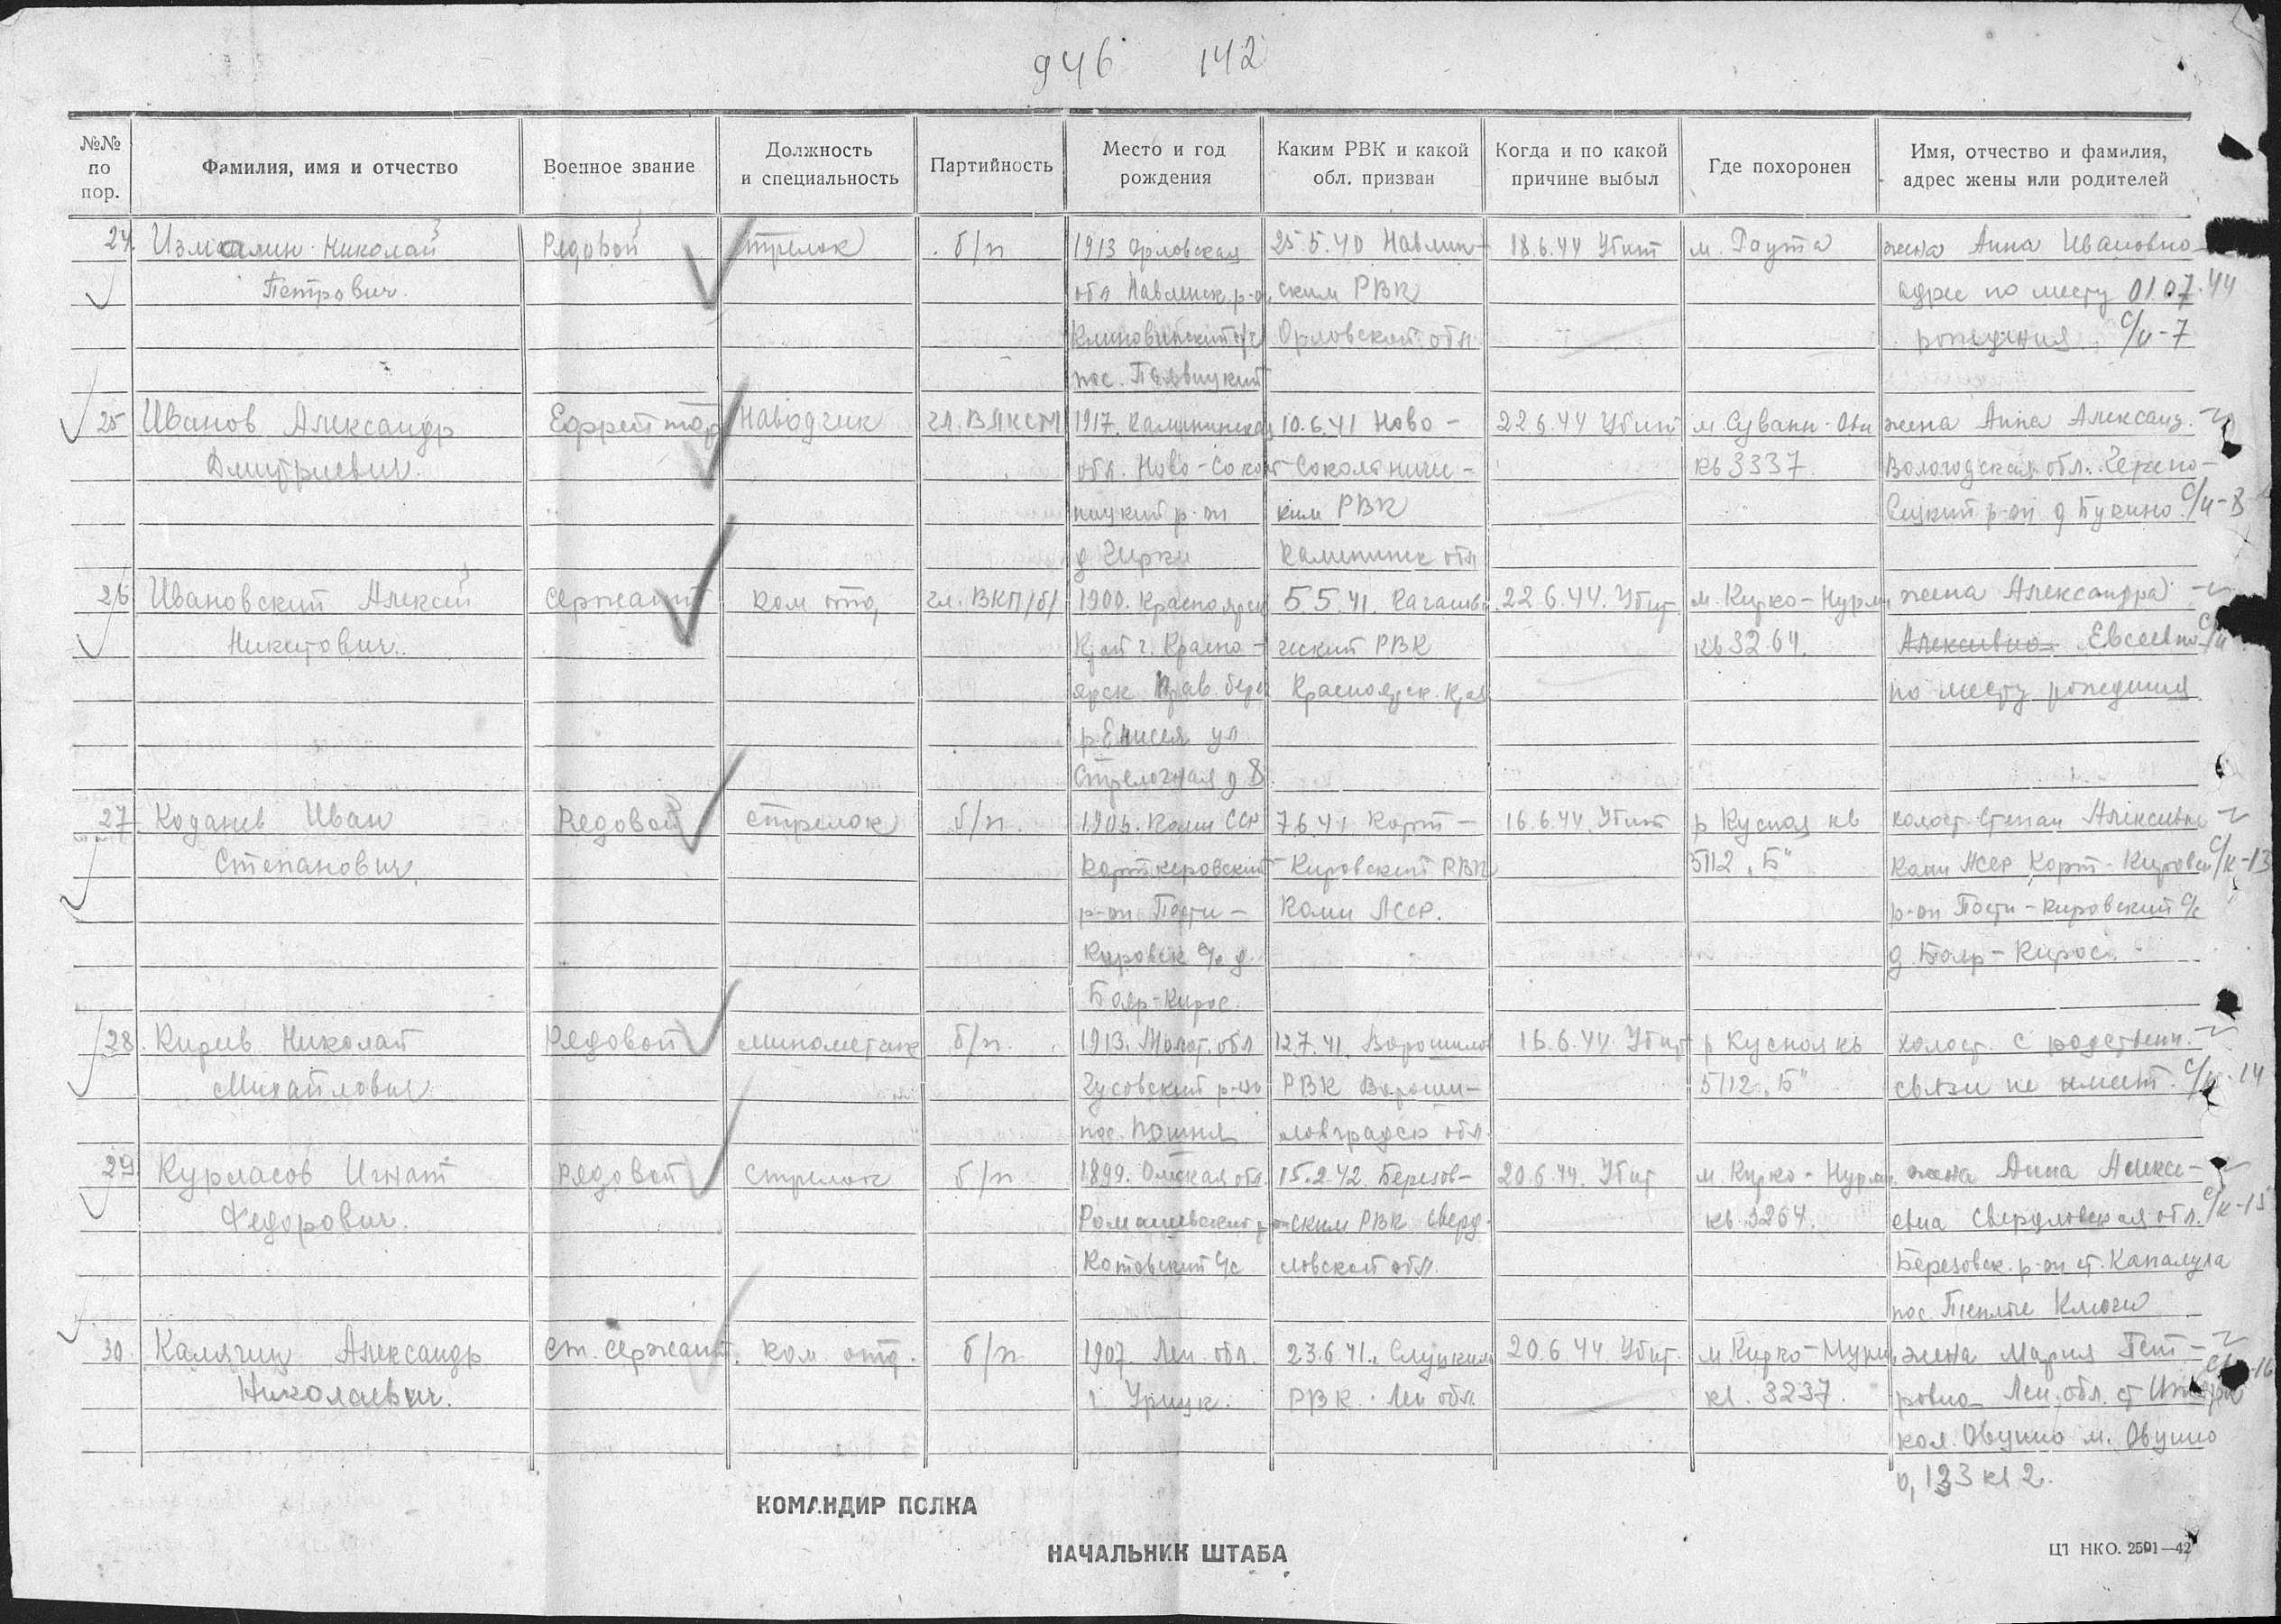 946 142
№№ по пор.
Фамилия, имя и отчество
Военное звание
Должность и специальность
Партийность
Место и год рождения
Каким РВК и какой обл. призван
Когда и по какой причине выбыл
Где похоронен
Имя, отчество и фамилия, адрес жены или родителей
24. Измалин Николай Рядовой стрелок б/п 1913 Орловская 25.5.40 Навлин- 18.6.44 Убит м. Раута жена Анна Ивановна
Петрович. обл Навленск. р-н, ским РВК адрес по месту 01.07.44
с/с Орловской обл рождения с/и-7
пос.
25 Иванов Александр Ефрейтор Наводчик чл. ВЛКСМ 1917. Калининская 10.6.41 Ново- 22 6.44 Убит м. жена Анна Александ.
Дмитриевич. обл. Ново-Соколь- Сокольниче- кв 3337. Вологодская обл. Черепо-
ницкий р-он ким РВК вецкий р-он д Букино
д Чирки Калининск обл
26 Ивановский Алексей Сержант ком отд, чл. ВКП/б/ 1900. Красноярск 5.5.41. 22 6.44. Убит. м. Кирко-Нурми жена Александра
Никитович. Край г. Красно- ческий РВК кв 32.64. Алексеевна Евсеевна
ярск Прав. берег Красноярск. края по месту рождения
р. Енисея ул
Стрелочная д 8.
27 Коданев Иван Рядовой стрелок б/п. Коми ССР 7 6.41 Корт- 16.6.44. Убит р Кусная кв холост. Степан
Степанович. Корткеровский Кировский РВК 5112 „Б" Коми АССР Корт-Кировск с/к-13
р-он Пости- Коми АССР. р-он Пости-кировский с/с
Кировск с/с д. д. Бояр-Кирос.
Бояр-Кирос.
28. Кирев Николай Рядовой минометчик б/п. 1913. Молот. обл 12.7.41. Ворошилов 16.6.44. Убит р Кусноя кв холост. С родственн.
Михайлович Чусовский р-он РВК Вороши- 5112 „Б" связи не имеет. 14
пос. Пашня ловградск обл.
29 Курласов Игнат рядовой стрелок б/п 1899. Омская обл. 15.2.42. Березов- 20.6.44. Убит м. Кирко-Нурми. жена Анна Алексе-
Федорович. ским РВК Сверд- кв 3264. евна Свердловская обл. с/к-15
Котовский с/с ловской обл. Березовск. р-он ст.
пос Теплые Ключи
30. Калягин Александр ст. сержант. ком отд. б/п 1907. Лен. обл. 23.6.41. Слуцким 20.6.44 Убит. м. Кирко-Нурми, жена Мария Пет-
Николаевич. г. Урицк. РВК. Лен обл. кв. 3237. ровна Лен. обл. ст
кол. Овцино м. Овцино
133 кв 2.
КОМАНДИР ПОЛКА
НАЧАЛЬНИК ШТАБА
ЦТ НКО. 2591—42